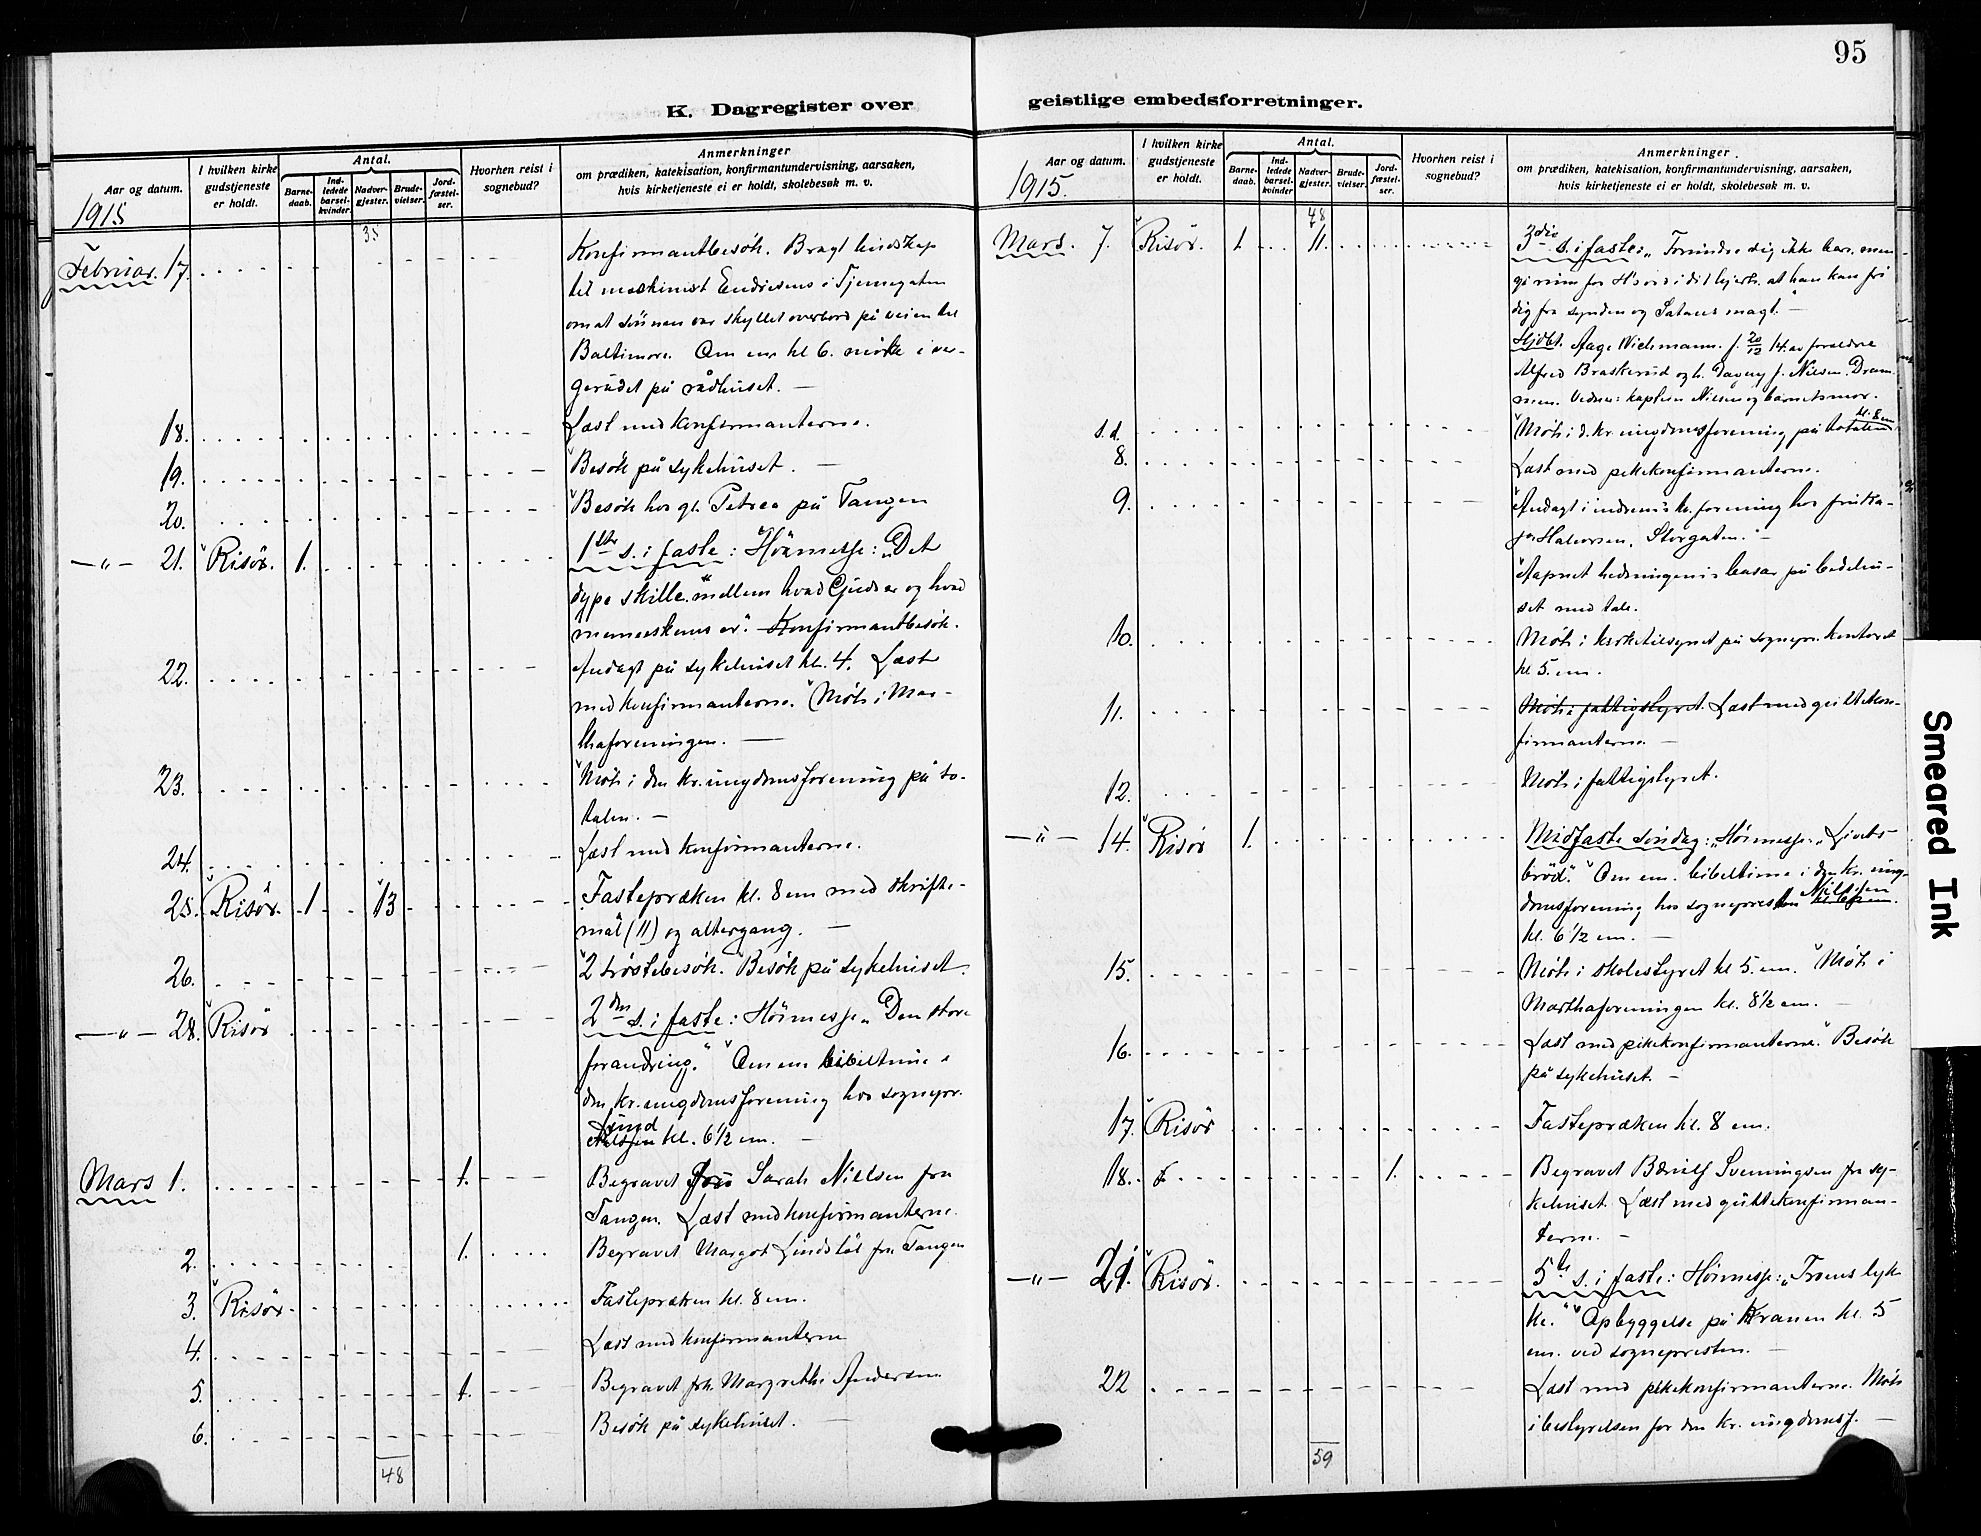 95
K. Dagregister over geistlige embedsforretninger.
Aar og datum.
I hvilken kirke gudstjeneste er holdt.
Antal.
Barne-daab.
Ind-ledede barsel-kvinder.
Nadver-gjester.
Brude-vielser.
Jord-fæstel-ser.
Hvorhen reist i sognebud?
Anmerkninger
om prædiken, katekisation, konfirmantundervisning, aarsaken,
hvis kirketjeneste ei er holdt, skolebesøk m. v.
1915
35
Februar. 17. Konfirmantbesøk. Bragt budskap
til maskinist Endresens i Tjennegaten
om at sönnen var skyllet overbord på veien til
Baltimore. Om em kl 6. møte i ver-
gerådet på rådhuset. —
18. Læst med konfirmanterne.
19. Besøk på sykehuset. —
20. Besøk hos gl. Petrea på Tangen
—"— 21. Risör. 1. 1ste s. i faste: Höimesse: „Det
dype skille mellem hvad Gud er og hvad
menneskene er." Konfirmantbesøk.
22. Andagt på sykehuset kl. 4. Læst
med konfirmanterne. Møte i Mar-
thaforeningen. —
23. Møte i den kr. ungdomsforening på to-
talen. —
24. Læst med konfirmanterne.
25. Risör. 1 13 Fastepræken kl. 8 em med skrifte-
mål (11) og altergang. —
26. 2 trøstebesøk. Besøk på sykehuset.
—"— 28. Risör 2den s. i faste: Höimesse „Den store
forandring." Om em bibeltime i
den kr. ungdomsforening hos sognepr.
Lund
Nielsen kl. 6 1/2 em. —
Mars 1. 1. Begravet Fru Sarah Nielsen fra
Tangen. Læst med konfirmanterne.
2. 1. Begravet Margot Lindstöl fra Tangen
3. Risör. Fastepræken kl. 8 em.
4. Læst med konfirmanterne
5. 1. Begravet frk. Margrethe Andersen.
6. Besøk på sykehuset. —
48
Aar og datum.
I hvilken kirke gudstjeneste er holdt.
Antal.
Barne-daab.
Ind-ledede barsel-kvinder
Nadver-gjester.
Brude-vielser.
Jord-fæstel-ser.
Hvorhen reist i sognebud?
Anmerkninger.
om prædiken, katekisation, konfirmantundervisning, aarsaken,
hvis kirketjeneste ei er holdt, skolebesøk m. v.
1915.
48
Mars. 7. Risör. 1 11. 3die s. i faste: „ ikke bare, men
gi rum for i dit hjerte, at han kan fri
dig fra synden og Satans magt." —
Hjdbt. Aage Wichmann. f. 20/12 14. av forældre
Alfred Braskerud og h. Dagny f. Nilsen. Dram-
men. Vidner: kaptein Nilsen og barnets mor.
s. d. Møte i d. kr. ungdomsforening på totalen kl. 8 em
8. Læst med pikekonfirmanterne.
9. Andagt i indrem.s kv. forening hos fru
Halvorsen, Storgaten. —
Aapnet hedningem.s basar på bedehu-
set med tale.
10. Møte i kirketilsynet på sognepr. kontoret
kl 5. em.
11. Møte i fattigstyret. Læst med guttekon-
firmanterne —
12. Møte i fattigstyret.
—"— 14. Risör 1. Midfaste söndag: Höimesse: „Livets
bröd." Om em. bibeltime i den kr. ung-
domsforening hos sognepresten Nielssen
kl. 6 1/2 em. —
15. Møte i skolestyret kl 5. em. Møte i
Marthaforeningen kl. 8 1/2 em. —
16. Læst med pikekonfirmanterne. Besøk
på sykehuset. —
17. Risör Fastepræken kl. 8 em.
18. 1. Begravet Svenningsen fra sy-
kehuset. Læst med guttekonfirman-
terne. —
—"— 21. Risör. 5te s. i faste: Höimesse: „Troens lyk-
ke." Opbyggelse på Kranen kl. 5
em. ved sognepresten. —
22 Læst med pikekonfirmanterne. Møte
i bestyrelsen for den kr. ungdomsf. —
59
Smeared Ink